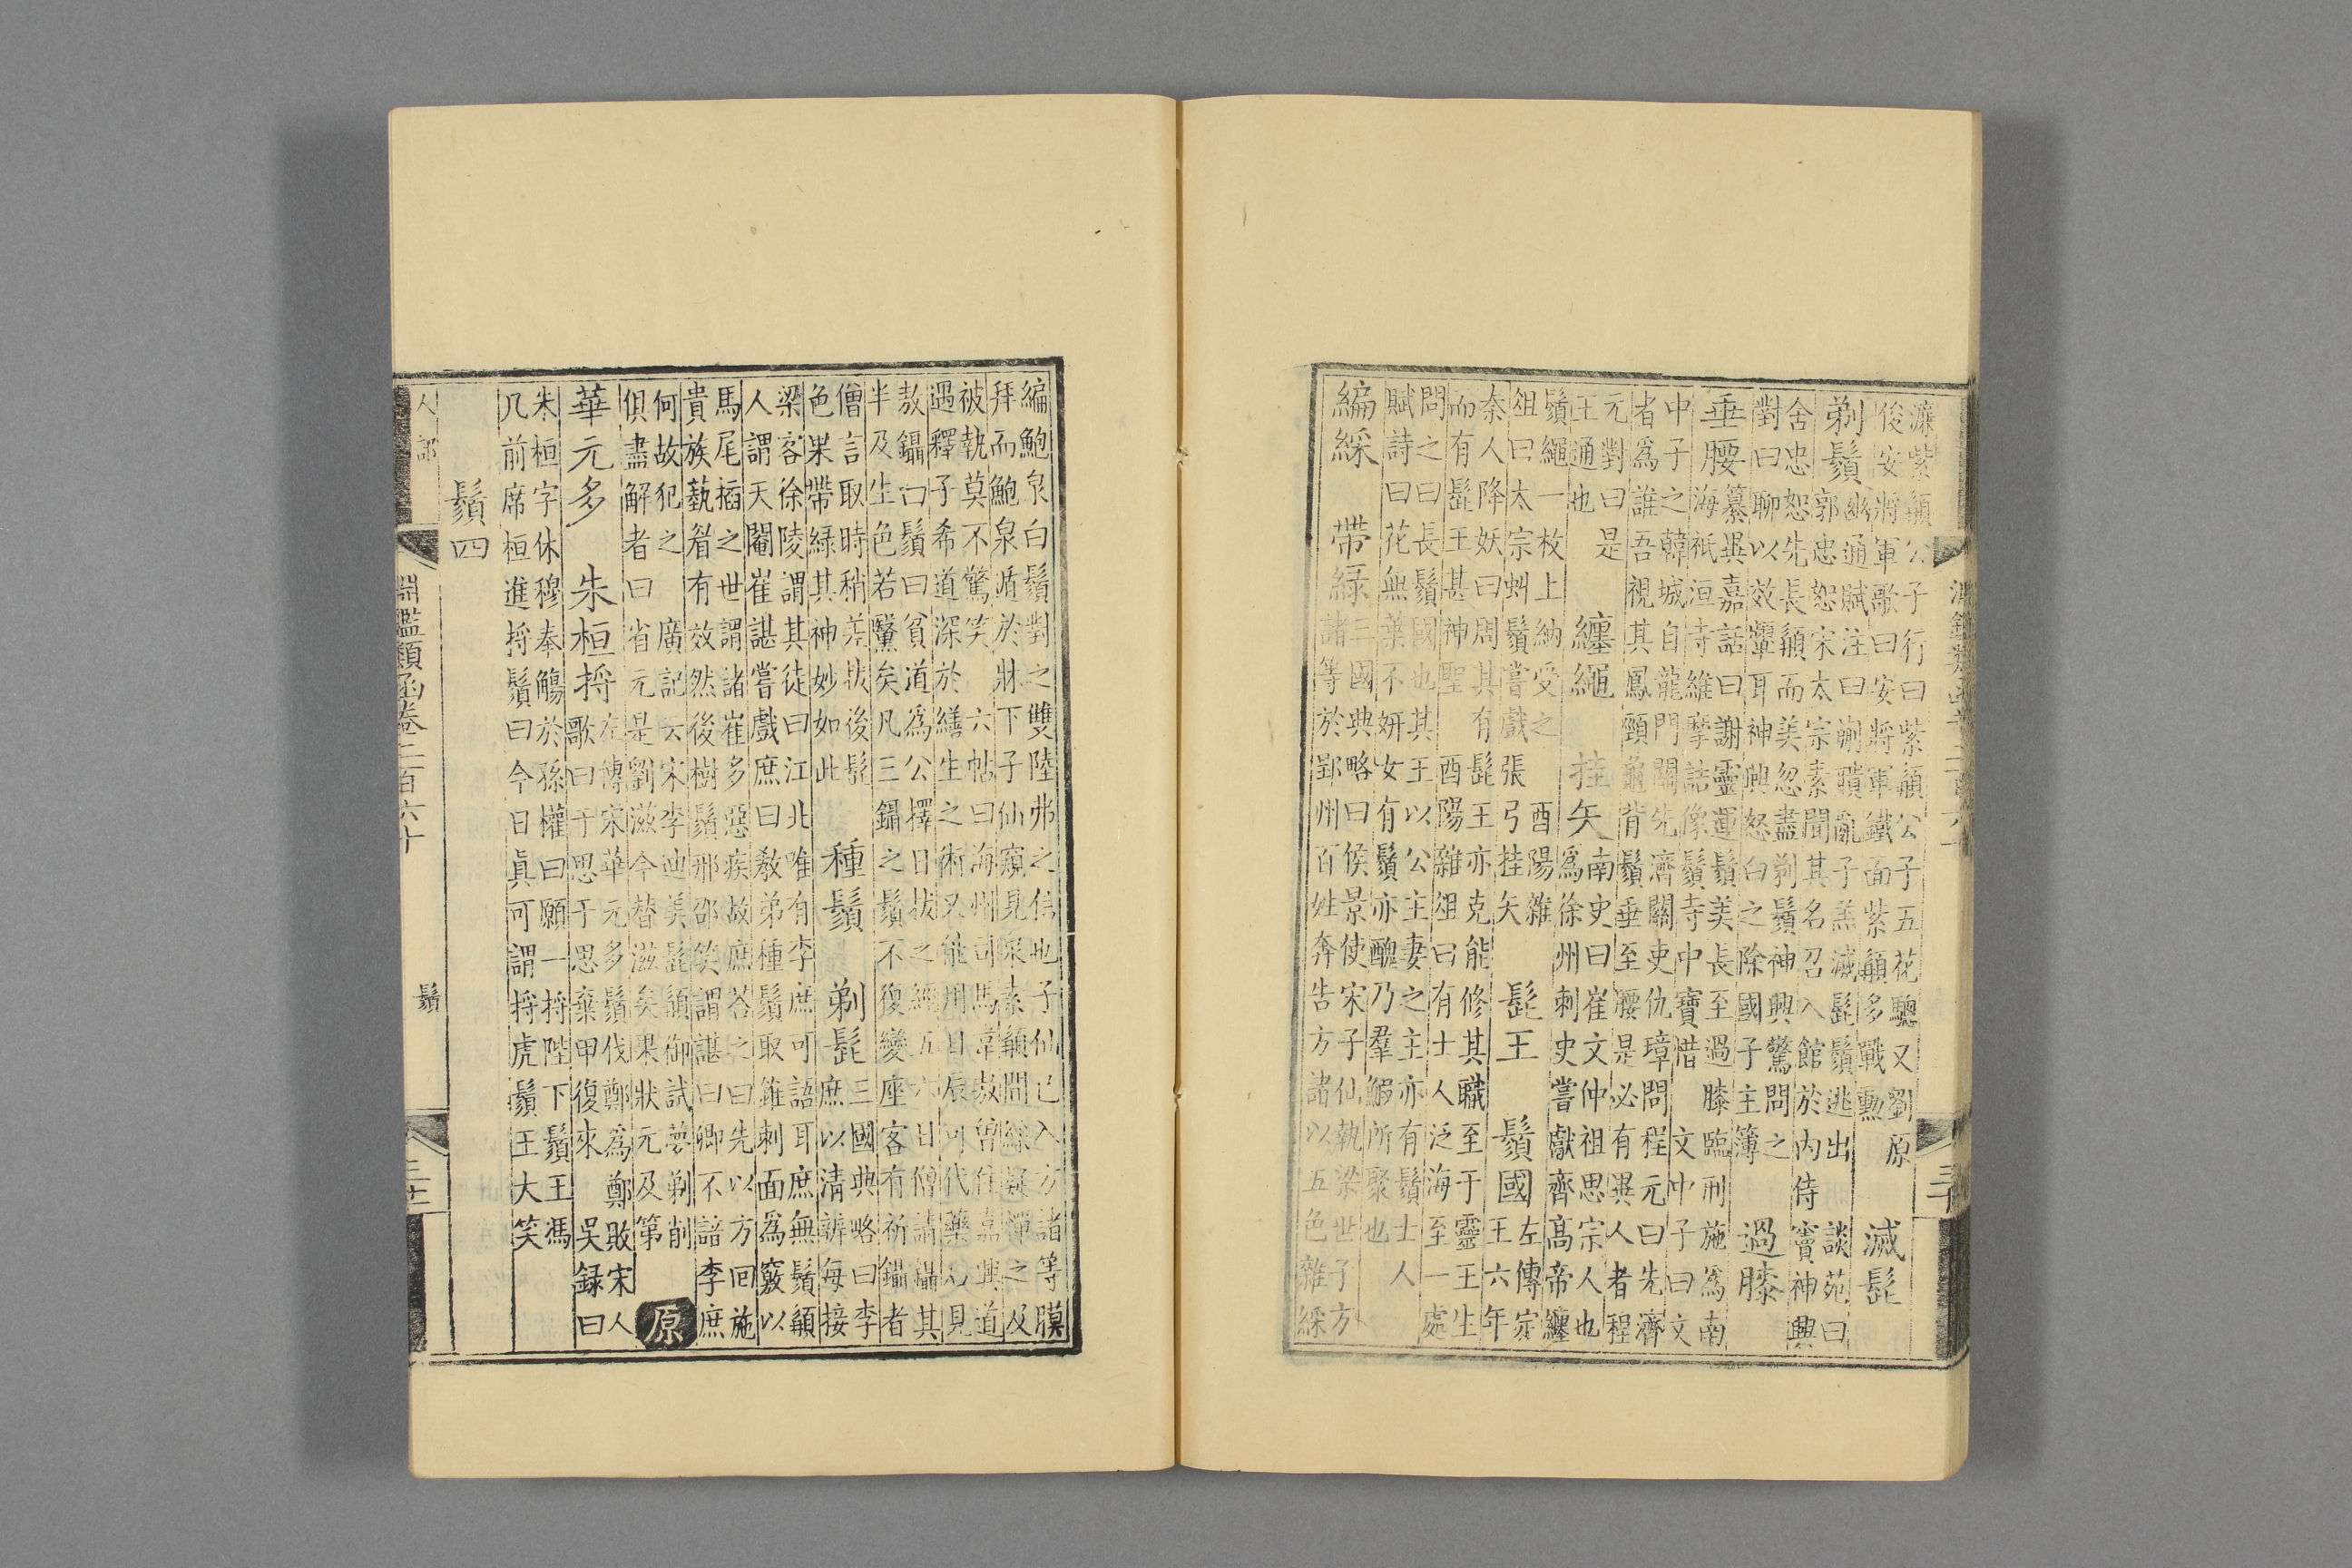 濂紫䫇公子行曰紫䫇公子五花驄又劉原
俊安將軍歌曰安將軍鐵面紫䫇多戰勳
滅髭
剃鬚
幽通賦注曰蒯聵亂子羔滅髭鬚逃出 談苑曰
郭忠恕宋太宗素聞其名召入館於內侍竇神興
舍忠恕先長䫇而美忽盡剃鬚神興驚問之
對曰聊以效顰耳神興怒白之除國子主簿
過膝
垂腰
纂異嘉話曰謝靈運鬚美長至過膝臨刑施為南
海祇洹寺維摩詰像鬚寺中寶惜 文中子曰文
中子之韓城自龍門關先濟關吏仇璋問程元曰先濟
者為誰吾視其鳳頸龜背鬚垂至腰是必有異人者程
元對曰是
王通也
纏繩 挂矢
南史曰崔文仲祖思宗人也
為徐州刺史嘗獻齊高帝纏
鬚繩一枚上納受之 酉陽雜
俎曰太宗虯鬚嘗戲張弓挂矢
髭王 鬚國
左傳定
王六年
秦人降妖曰周其有髭王亦克能修其職至于靈王生
而有髭王甚神聖 酉陽雜俎曰有士人泛海至一處
問之曰長鬚國也其王以公主妻之主亦有鬚士人
賦詩曰花無葉不妍女有鬚亦醜乃羣鰕所聚也
編綵 帶緑
三國典略曰侯景使宋子仙執梁世子方
諸等於郢州百姓奔告方諸以五色雜綵
編鮑泉白鬚對之雙陸弗之信也子仙已入方諸等膜
拜而鮑泉遁於牀下子仙窺見泉素䫇間綵疑憚之及
被執莫不驚笑 六帖曰海州司馬韋敖曾往嘉興道
遇釋子希道深於繕生之術又能用日辰可代藥石見
敖鑷白鬚曰貧道為公擇日拔之經五六日僧請鑷其
半及生色若黳矣凡三鑷之鬚不復變座客有祈鑷者
僧言取時稍差拔後髭
色果帶緑其神妙如此
種鬚 剃髭
三國典略曰李
庶以清辨每接
梁客徐陵謂其徒曰江北唯有李庶可語耳庶無鬚䫇
人謂天閹崔諶嘗戲庶曰敎弟種鬚取錐刺面為竅以
馬尾㨶之世謂諸崔多惡疾故庶荅之曰先以方回施
貴族藝眉有效然後樹鬚邢邵笑謂諶曰卿不諳李庶
何故犯之 廣記云宋李迪美髭䫇御試夢剃削
俱盡解者曰 省元是劉滋今替滋矣果狀元及第
原
華元多 朱桓捋
左傳宋華元多鬚伐鄭為鄭敗宋人
歌曰于思于思棄甲復來 吳録曰
朱桓字休穆奉觴於孫權曰願一捋陛下鬚王馮
几前席桓進捋鬚曰今日眞可謂捋虎鬚王大笑
鬚四
人部
淵鑑類函卷二百六十
鬚